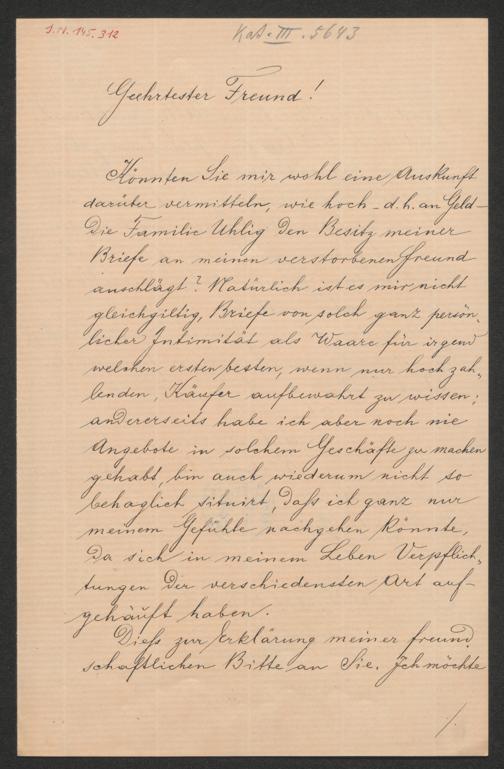 J.N. 145.312
Kat. III. 5643
Geehrtester Freund!
Könnten Sie mir wohl eine Auskunft
darüber vermitteln, wie hoch – d. h. an Geld –
die Familie Uhlig den Besitz meiner
Briefe an meinen verstorbenen Freund
anschlägt? Natürlich ist es mir nicht
gleichgiltig, Briefe von solch ganz persön„
licher Intimität als Waare für irgend
welchen ersten besten, wenn nur hoch zah„
lenden, Käufer aufbewahrt zu wissen;
andererseits habe ich aber noch nie
Angebote in solchem Geschäfte zu machen
gehabt, bin auch wiederum nicht so
behaglich situirt, daſs ich ganz nur
meinem Gefühle nachgehen könnte,
da sich in meinem Leben Verpflich„
tungen der verschiedensten Art auf-
gehäuft haben.
Dieſs zur Erklärung meiner freund„
schaftlichen Bitte an Sie. Ich möchte
1.